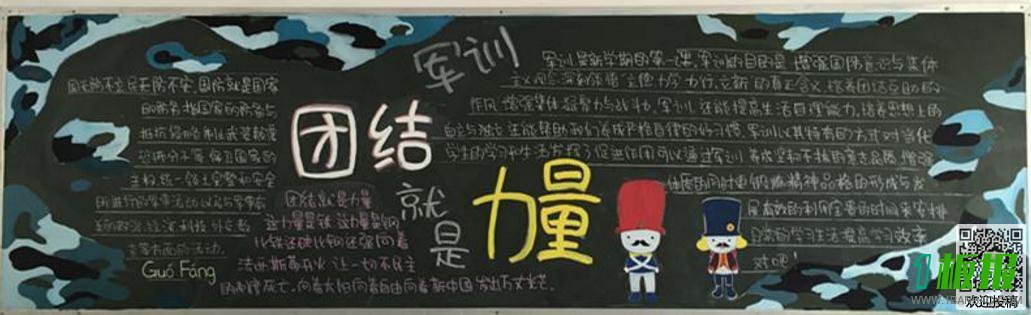 军训
团结
就
是
力量
国无防不立,民无防不安,国防就是国家
的防务,指国家的防务与
抵抗侵略制止武装颠覆
主权统一领土完整和安全
所进行的军事活动以及与军事有
主等方面的活动。
Guó Fáng
团结就是力量
这力量是铁 这力量是钢
比铁还硬 比钢还强 向着
法西斯蒂开火 让一切不民主
的制度死亡。向着太阳向着自由向着新中国 发出万丈光芒。
军训是新学期的第一课,军训的目的是 增强国防意识与集体
作风 增强集体凝聚力与战斗力。军训 还能提高生活自理能力,培养思想上的
自立与独立 还能帮助我们养成严格自律的好习惯。军训以其特有的方式对当代
学生的学习和生活发挥了促进作用可以通过军训 养成坚和不拔的意志品质,增强
体质的同时更锻炼精神品格的形成与发
展,有效的利用宝贵的时间来安排
日常的学习生活提高学习效率
对吧!
板报
欢迎投稿